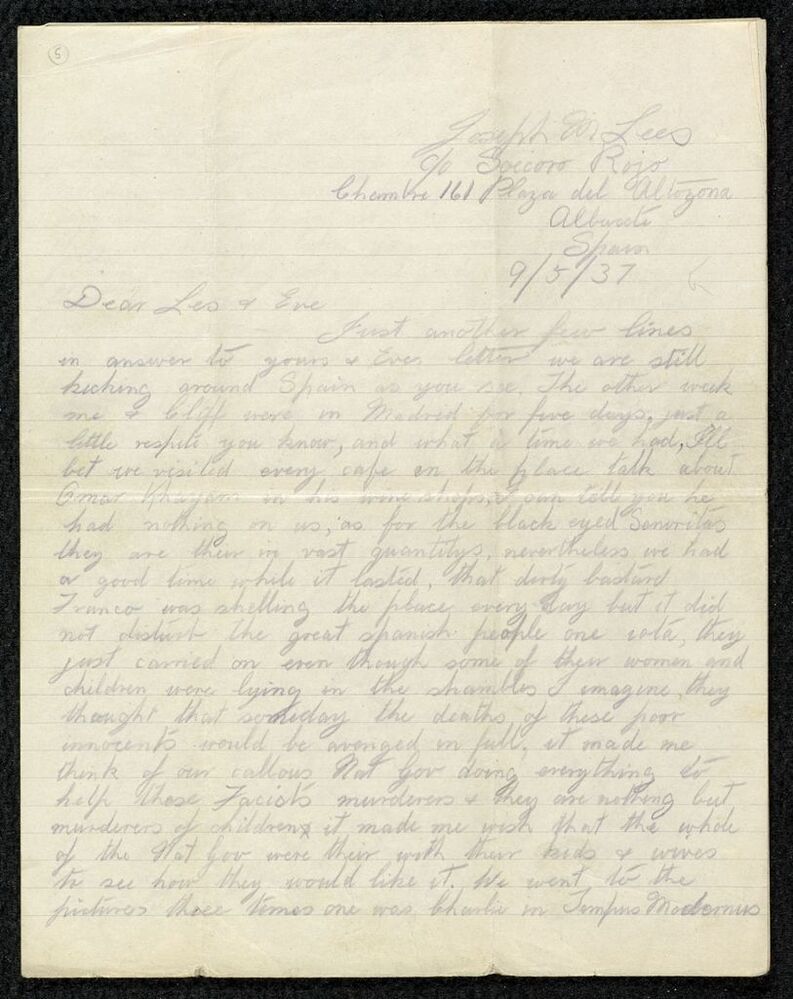 5
Joseph M Lees
c/o Soccoro Rojo
Chambre 161 Plaza del Altozona
Albacete
Spain
9/5/37
Dear Les & Eve
Just another few lines
in answer to yours & Eves letter we are still
kicking around Spain as you see. The other week
me & Cliff were in Madrid for five days, just a
little respite you know, and what a time we had, I'll
bet we visited every cafe in the place talk about
Omar Khayam in his wine shops, I can tell you he
had nothing on us, as for the black eyed Senoritas
they are their in vast quantitys, nevertheless we had
a good time while it lasted, that dirty bastard
Franco was shelling the place every day but it did
not disturb the great spanish people one iota, they
just carried on even though some of their women and
children were lying in the shambles I imagine, they
thought that someday the deaths of these poor
innocents would be avenged in full, it made me
think of our callous Nat Gov doing everything to
help these Facists murderers & they are nothing but
murderers of children, it made me wish that the whole
of the Nat Gov were their with their kids & wives
to see how they would like it. We went to the
pictures three times one was Charlie in Tempus Modernus